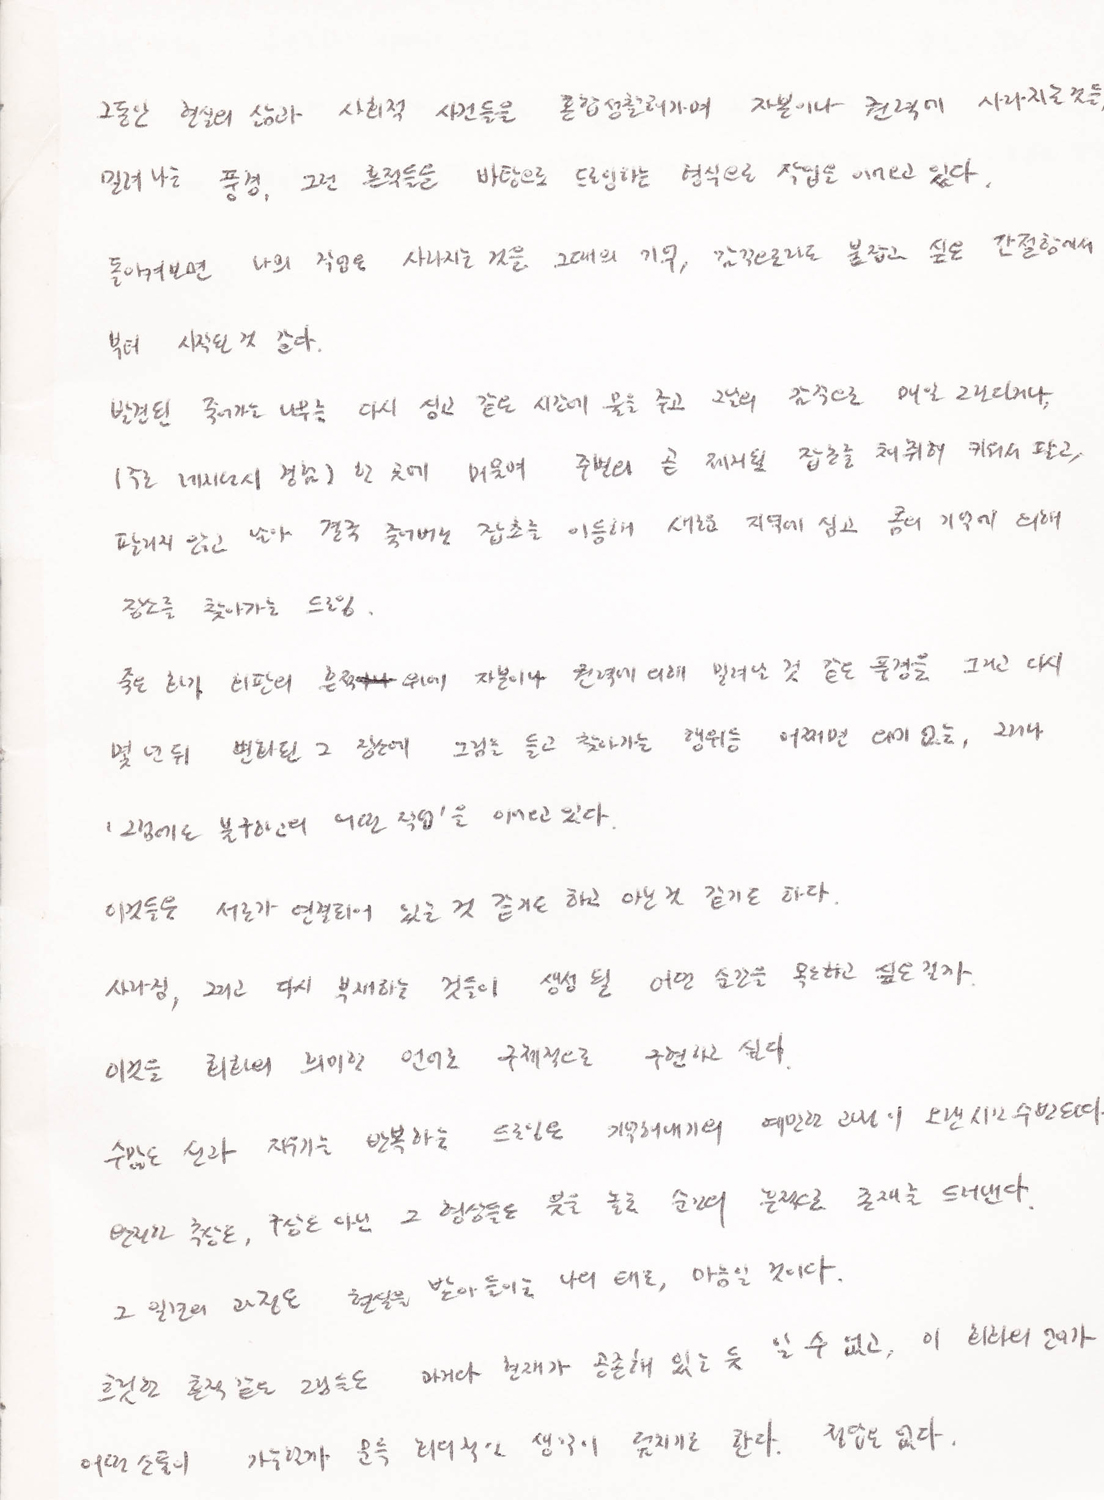 그동안 현실의 삶과 사회적 사건들을 혼합성찰해가며 자본이나 권력에 사라지는것들,
밀려나는 풍경, 그런 흔적들을 바탕으로 드로잉하는 형식으로 작업을 이어오고 있다.
돌이켜보면 나의 작업은 사라지는 것을 그대의 기억, 감각으로라도 붙잡고 싶은 간절함에서
부터 시작된 것 같다.
발견된 죽어가는 나무를 다시 심고 같은 시간에 물을 주고 그날의 감각으로 매일 그린다거나,
(주로 레지던시 경험) 한 곳에 머물며 주변의 곧 제거될 잡초를 채취해 키워서 팔고,
팔리지 않고 남아 결국 죽어버린 잡초를 이동해 새로운 지역에 심고 몸의 기억에 의해
장소를 찾아가는 드로잉.
죽은 화가 화판의 흔적 위에 자본이나 권력에 의해 밀려난 것 같은 풍경을 그리고 다시
몇 년 뒤 변화된 그 장소에 그림을 들고 찾아가는 행위등 어쩌면 의미 없는, 그러나
'그럼에도 불구하고의 어떤 작업'을 이어오고 있다.
이것들은 서로가 연결되어 있는 것 같기도 하고 아닌 것 같기도 하다.
사라짐, 그리고 다시 부재하는 것들이 생성 될 어떤 순간을 목도하고 싶은걸까.
이것을 회화의 언어로 구체적으로 구현하고 싶다.
수많은 선과 지우기를 반복하는 드로잉은 기억해내기의 예민한 과정이 오랜시간 수반된다.
완전한 추상도, 구상도 아닌 그 형상들은 붓을 놀린 순간의 흔적으로 존재를 드러낸다.
그 일련의 과정은 현실을 받아들이는 나의 태도, 마음일 것이다.
흐릿한 흔적같은 그림들은 과거와 현재가 공존해 있는 듯 알 수 없고, 이 회화의 언어가
어떤 소통이 가능할까 문득 회의적인 생각이 덮치기도 한다. 정답은 없다.